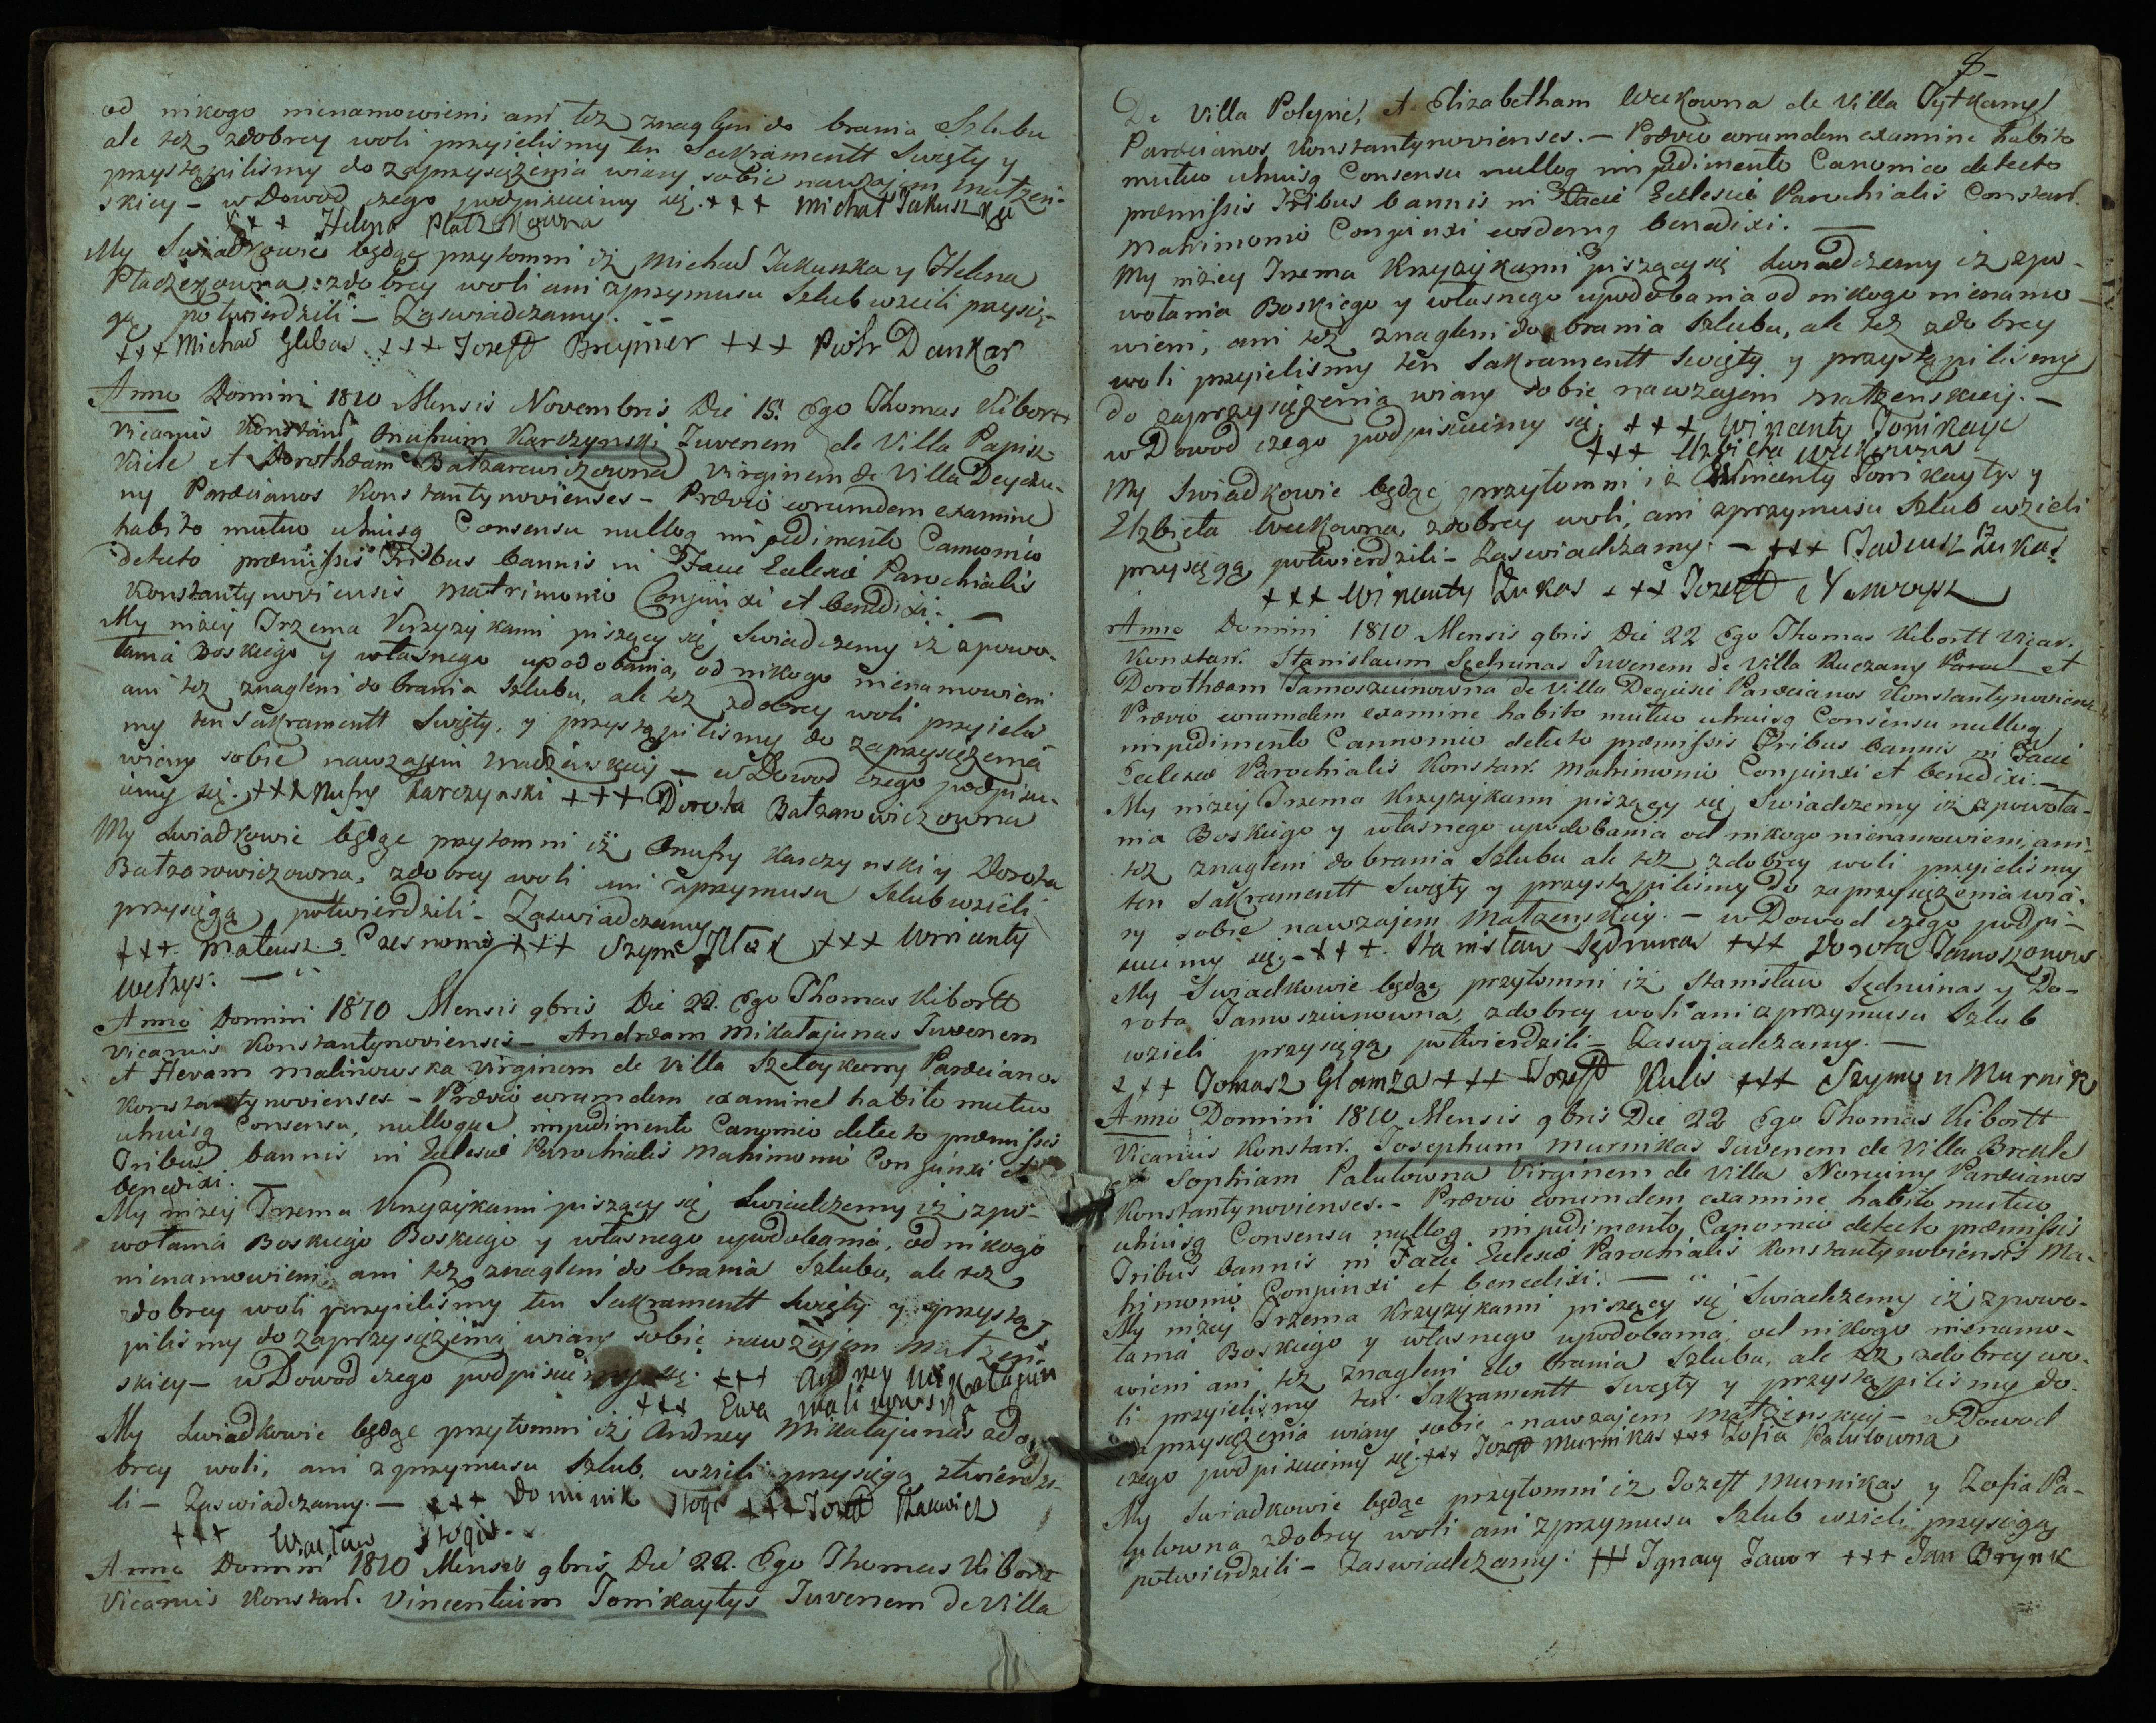 od nikogo nienamowieni ani też znagleni do brania Szlubu
ale też zdobrey woli przyieliśmy ten Sakramentt Swięty y
przystąpiliśmy do zaprzysiężenia wiary sobie nawzajem małżeń-
skiey – w Dowod czego podpisuiemy się. +++ Michał Jakuszka
+++ Helena Płaczkowna
My Swiadkowie będąc przytomni iż Michał Jakuszka y Helena
zdobrey woli ani zprzymusu Szlub wzieli przysię-
gą potwierdzili – Zaswiadczamy.
+++ Michał Glebas +++ Jozeff +++ Piotr Dankar
Anno Domini 1810 Mensis Novembris Die 15. Ego Thomas Kibortt
Vicarius Konstant Onufrium Karczynski Juvenem de Villa Papisz
kiele et Dorotheam Batzarewiczowna Virginem de Villa
ny Paræcianos Konstantynovienses – Prævio eorumdem examine
habito mutuo utriusq Consensu nulloq impedimento Cannonico
detecto præmissis Tribus bannis in Facie Eclesiæ Parochialis
Konstantynoviensis Matrimonio Conjunxi et benedixi. –
My niżey Trzema Krzyzykami piszący się Swiadczemy iż zpowo-
łania Boskiego y własnego upodobania, od nikogo nienamowieni
ani też znagleni do brania szlubu, ale też zdobrey woli przyieliś
my ten Sakramentt Swięty, y przystąpiliśmy do zaprzysiężenia
wiary sobie nawzajem małżeńskiey – w Dowod czego podpisu-
iemy się. +++ Onufry Karczynski +++ Dorota Batzarowiczowna
My Swiadkowie będąc przytomni iż Onufry Karczynski y Dorota
Batzarowiczowna, zdobrey woli ani zprzymusu Szlub wzieli
przysięgą potwierdzili – Zaswiadczamy
+++ Mateusz +++ Szym +++ Wincenty

Anno Domini 1810 Mensis 9bris Die 22. Ego Thomas Kibortt
Vicarius Konstantynoviensis – Andream Mikałajunas Juvenem
et Hevam Malinowska Virginem de Villa Paræcianos
Konstantynovienses – Prævio eorumdem examine habito mutuo
utriusq Consensu, nulloque impedimento Canonico detecto præmissis
Tribus bannis in Eclesiæ Parochialis Matrimonio Conjunxi et
benedixi. –
My niżey Trzema Krzyzykami piszący się Swiadczemy iż zpo-
wołania Boskiego Boskiego y własnego upodobania, od nikogo
nienamowieni ani też znagleni do brania Szlubu, ale też
zdobrey woli przyieliśmy ten Sakramentt Swięty y przystą-
piliśmy do zaprzysiężenia wiary sobie nawzajem Małżeń-
skiey – w Dowod czego podpisuiemy się. +++ Andrzey Mikałajun
+++ Ewa Malinowska
My Swiadkowie będąc przytomni iż Andrzey Mikałajunas zdo-
brey woli, ani zprzymusu Szlub wzieli przysięgą ztwierdzi-
li – Zaswiadczamy. – +++ Dominik Stogis +++ Jozeff
+++ Wacław Stogis.
Anno Domini 1810 Mensis 9bris Die 22. Ego Thomas Kibortt
Vicarius Konstant. Vincentium Tomkaytys Juvenem de Villa
8
De Villa Polepie, et Elizabetham Wickowna de Villa Pytkany
Paræcianos Konstantynovienses. – Prævio eorumdem examine habito
mutuo utriusq Consensu nulloq impedimento Canonico detecto
præmissis Tribus bannis in Facie Eclesiæ Parochialis Constant.
Matrimonio Conjunxi eosdemq benedixi. –
My niżey Trzema Krzyzykami piszący się Swiadczemy iż zpo-
wołania Boskiego y własnego upodobania od nikogo nienamo-
wieni, ani też znagleni do brania szlubu, ale też zdobrey
woli przyieliśmy ten Sakramentt Swięty y przystąpiliśmy
do zaprzysiężenia wiary sobie nawzajem małżenskiey. –
w Dowod czego podpisuiemy się. +++ Wincenty Tomkayc
+++ Elzbieta Wickowna
My Swiadkowie będąc przytomni iż Wincenty Tomkaytys y
Elzbieta Wickowna, zdobrey woli, ani zprzymusu Szlub wzieli
przysięgą potwierdzili – Zaswiadczamy. – +++ Tadeusz Żukas
+++ Wincenty Żukas +++ Jozeff
Anno Domini 1810 Mensis 9bris Die 22 Ego Thomas Kibortt Vicar.
Konstan. Stanislaum Sędrunas Juvenem de Villa Kuczany et
Dorotheam Tamoszunowna de Villa Degiisie Paræcianos Konstantynoviens.
Prævio eorumdem examine habito mutuo utriusq Consensu nulloq
impedimento Cannonico detecto præmissis Tribus bannis in Facie
Eclesiæ Parochialis Konstan. Matrimonio Conjunxi et benedixi. –
My niżey Trzema Krzyzykami piszący się Swiadczemy iż zpowoła-
nia Boskiego y własnego upodobania od nikogo nienamowieni, ani
też znagleni do brania Szlubu ale też zdobrey woli przyieliśmy
ten Sakramentt Swięty y przystąpiliśmy do zaprzysiężenia wia-
ry sobie nawzajem Małżenskiey. – w Dowod czego podpi-
suiemy się. – +++ Stanisław Sędrunas +++ Dorota
My Swiadkowie będąc przytomni iż Stanisław Sędrunas y Do-
rota Tamoszunowna, zdobrey woli ani zprzymusu Szlub
wzieli przysięgą potwierdzili – Zaswiadczamy. –
+++ Tomasz Glamza +++ Jozeff Kulis +++ Szymon Murnik
Anno Domini 1810 Mensis 9bris Die 22 Ego Thomas Kibortt
Vicarius Konstan. Josephum Murnikas Juvenem de Villa
et Sophiam Palulowna Virginem de Villa Noruiny Paræcianos
Konstantynovienses. – Prævio eorumdem examine habito mutuo
utriusq Consensu nulloq impedimento Canonico detecto præmissis
Tribus bannis in Facie Eclesiæ Parochialis Konstantynoviensis Ma-
trimonio Conjunxi et benedixi. –
My niżey Trzema Krzyzykami piszący się Swiadczemy iż zpowo-
łania Boskiego y własnego upodobania od nikogo nienamo-
wieni ani też znagleni do brania Szlubu, ale też zdobrey wo-
li przyieliśmy ten Sakramentt Swięty y przystąpiliśmy do
zaprzysiężenia wiary sobie nawzajem małżenskiey – w Dowod
czego podpisuiemy się. +++ Jozeff Murnikas +++ Zofia Palulowna
My Swiadkowie będąc przytomni iż Jozeff Murnikas y Zofia Pa-
lulowna zdobrey woli ani zprzymusu Szlub wzieli przysięgą
potwierdzili – Zaswiadczamy. +++ Ignacy Jawor +++ Jan Brynk